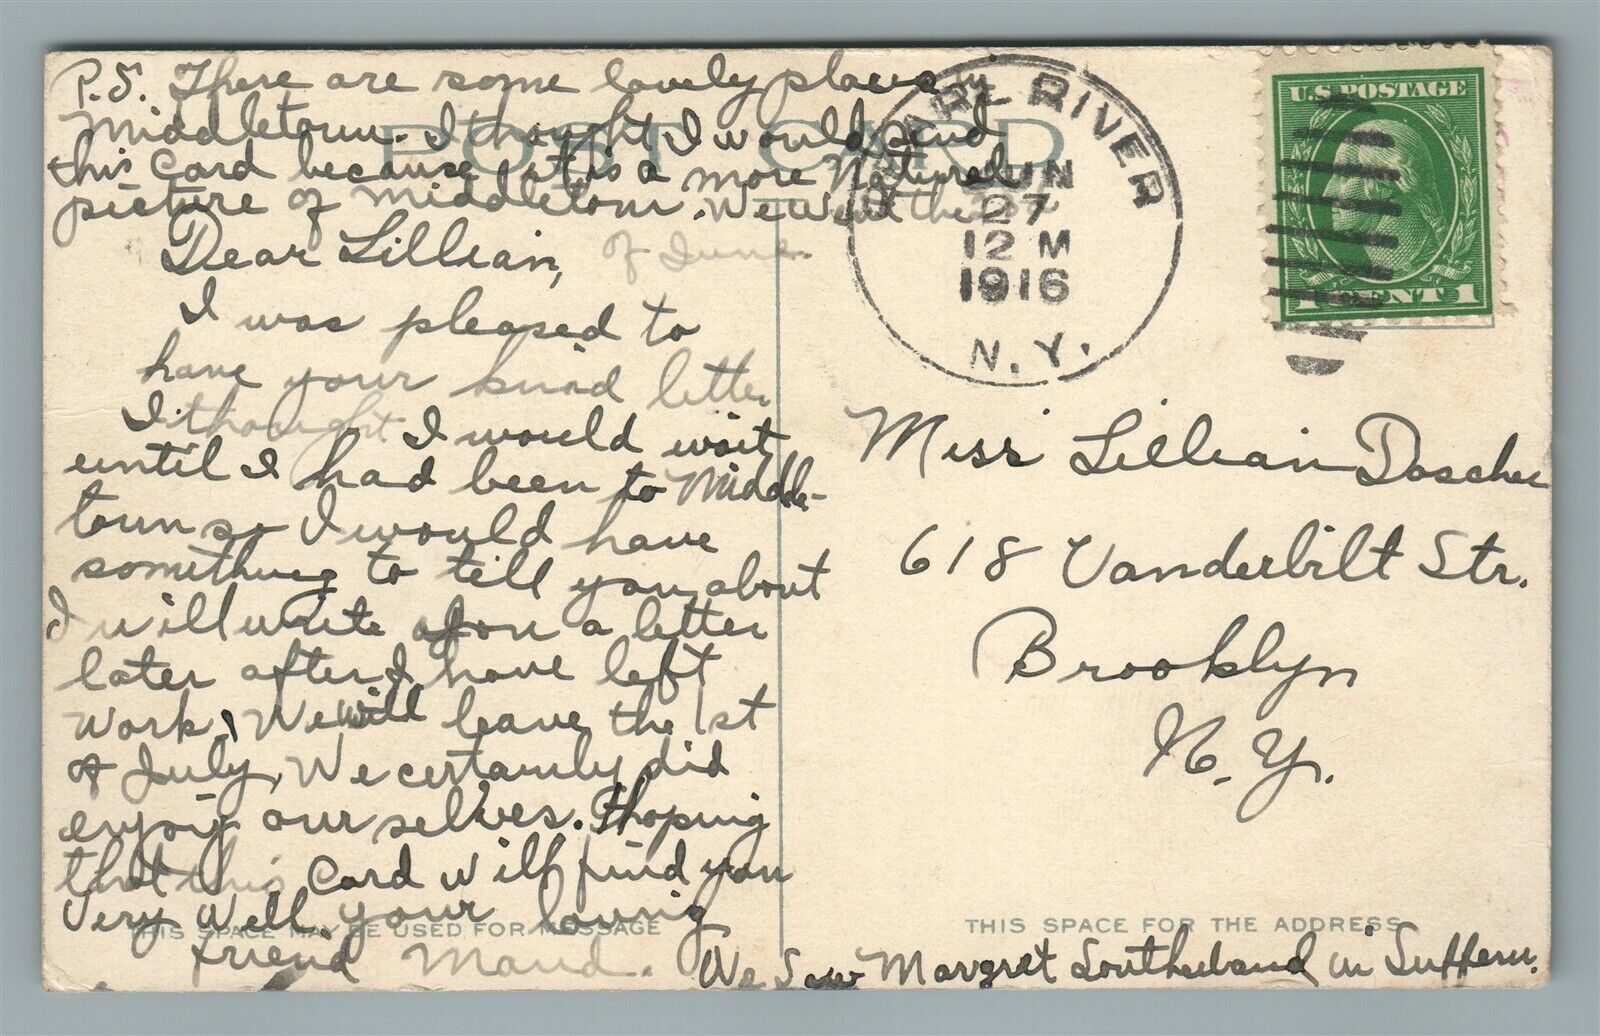 P.S. There are some lovely places in
Middletown. I thought I would send
this card because it is a more Natural
picture of Middletown. We went the
of June.
POST CARD
Dear Lillian,
I was pleased to
have your kind letter
I thought I would wait
until I had been to Middle-
town so I would have
something to tell you about
I will write upon a letter
later after I have left
work, We will leave the 1st
of July, We certainly did
enjoy our selves. Hoping
that this card will find you
Very Well your loving
THIS SPACE MAY BE USED FOR MESSAGE
friend Maud.
PEARL RIVER
JUN
27
12 M
1916
N.Y.
U.S. POSTAGE
1 CENT 1
Miss Lillian Doscher
618 Vanderbilt Str.
Brooklyn
N.Y.
THIS SPACE FOR THE ADDRESS
We Saw Margret Southerland in Suffern.